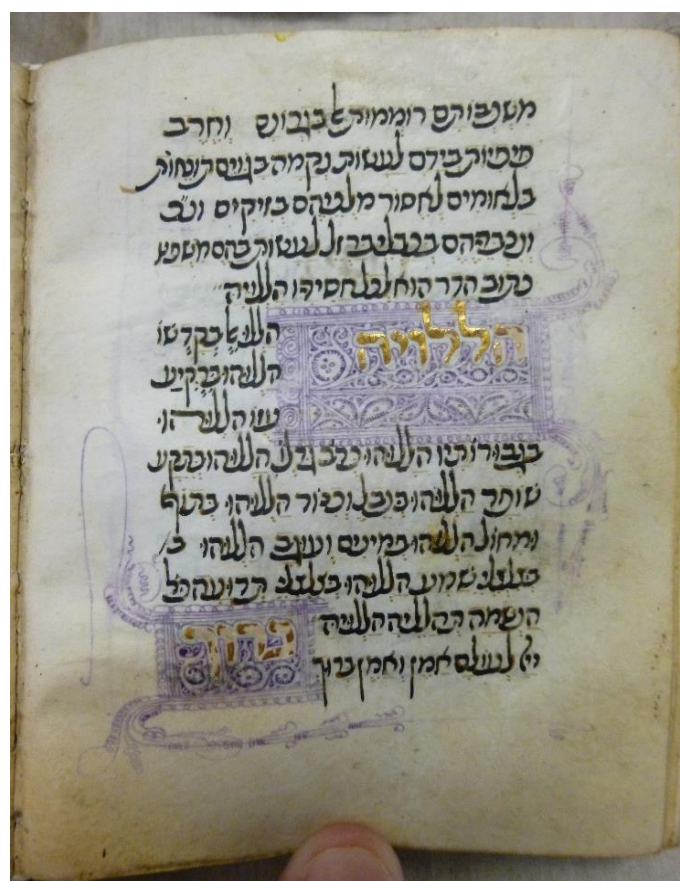 משכבותם רוממות אל בגרונם וחרב
פיפיות בידם לעשות נקמה בגוים תוכחות
בלאומים לאסור מלכיהם בזיקים ונכ
ונכבדיהם בכבלי ברזל לעשות בהם משפט
כתוב הדר הוא לכל חסידיו הללויה
הללויה
הללו אל בקדשו
הללוהו ברקיע
עזו הללוהו
בגבורותיו הללוהו כרב גדלו הללוהו בתקע
שופר הללוהו בנבל וכנור הללוהו בתוף
ומחול הללוהו במינים ועוגב הללוהו ב
בצלצלי שמע הללוהו בצלצלי תרועה כל
הנשמה תהלל יה הללויה
ברוך
יי לעולם אמן ואמן ברוך